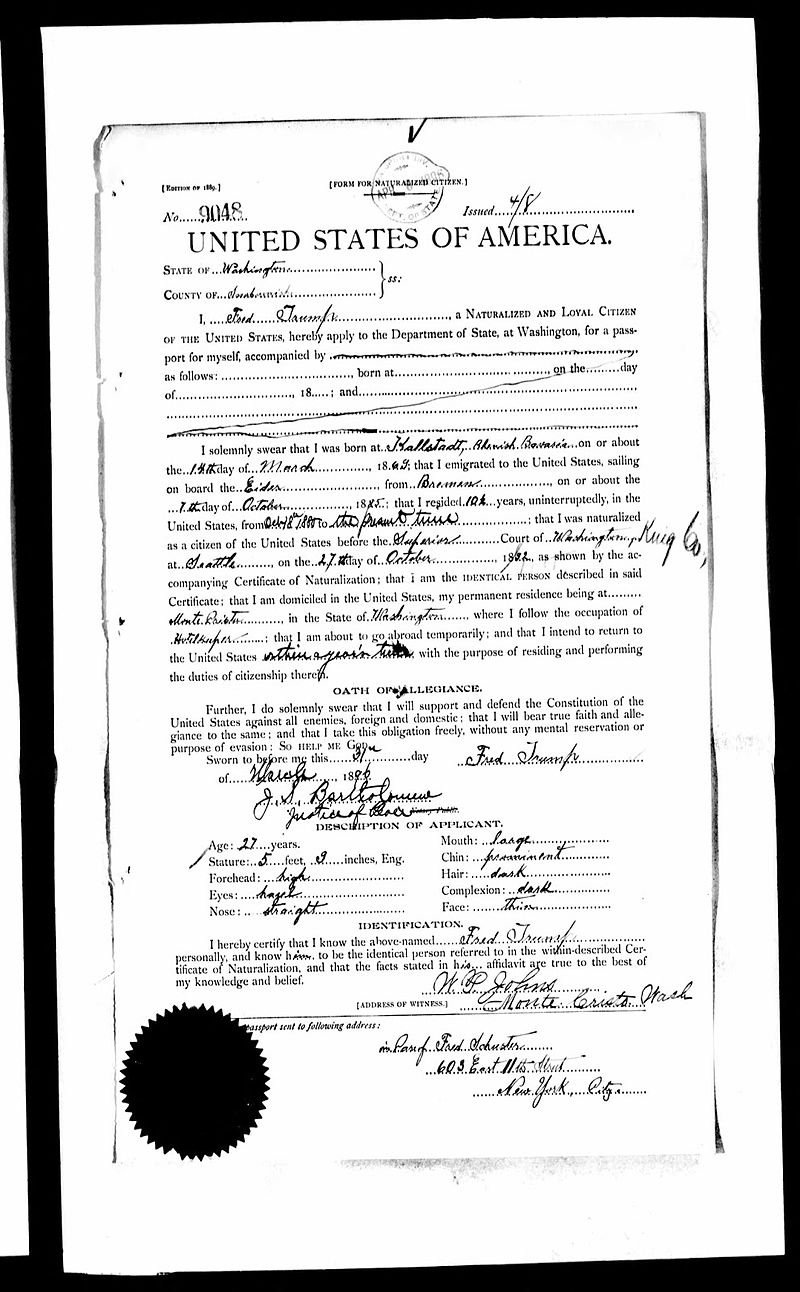 [EDITION OF 1889.]
[FORM FOR NATURALIZED CITIZEN.]
No. 9048
Issued 4/8
UNITED STATES OF AMERICA.
STATE OF Washington
COUNTY OF
ss:
I, Fred Trump, a NATURALIZED AND LOYAL CITIZEN
OF THE UNITED STATES, hereby apply to the Department of State, at Washington, for a pass-
port for myself, accompanied by
as follows: , born at , on the day
of , 18 ; and
I solemnly swear that I was born at Kallstadt, Rhenish Bavaria on or about
the 14th day of March, 18 ; that I emigrated to the United States, sailing
on board the Eider from Bremen, on or about the
7th day of October, 1885; that I resided 10½ years, uninterruptedly, in the
United States, from Oct 18th to the present time; that I was naturalized
as a citizen of the United States before the Superior Court of Washington, King Co,
at Seattle, on the 27th day of October, 1892, as shown by the ac-
companying Certificate of Naturalization; that I am the IDENTICAL PERSON described in said
Certificate; that I am domiciled in the United States, my permanent residence being at
Monte Cristo, in the State of Washington, where I follow the occupation of
Hotelkeeper; that I am about to go abroad temporarily; and that I intend to return to
the United States within a year's time with the purpose of residing and performing
the duties of citizenship therein.
OATH OF ALLEGIANCE.
Further, I do solemnly swear that I will support and defend the Constitution of the
United States against all enemies, foreign and domestic; that I will bear true faith and alle-
giance to the same; and that I take this obligation freely, without any mental reservation or
purpose of evasion: SO HELP ME GOD.
Sworn to before me this 31 day
Fred Trump
of March, 1896
J. S. Bartholomew
Justice of Peace
DESCRIPTION OF APPLICANT.
Age: 27 years. Mouth: large
Stature: 5 feet, 9 inches, Eng. Chin: prominent
Forehead: high Hair: dark
Eyes: hazel Complexion: dark
Nose: straight Face: thin
IDENTIFICATION.
I hereby certify that I know the above-named Fred Trump
personally, and know him to be the identical person referred to in the within-described Cer-
tificate of Naturalization, and that the facts stated in his affidavit are true to the best of
my knowledge and belief.
Johns
[ADDRESS OF WITNESS.] Monte Cristo Wash
passport sent to following address:
in care of Fred Schuster
603 East 11th Street
New York, City